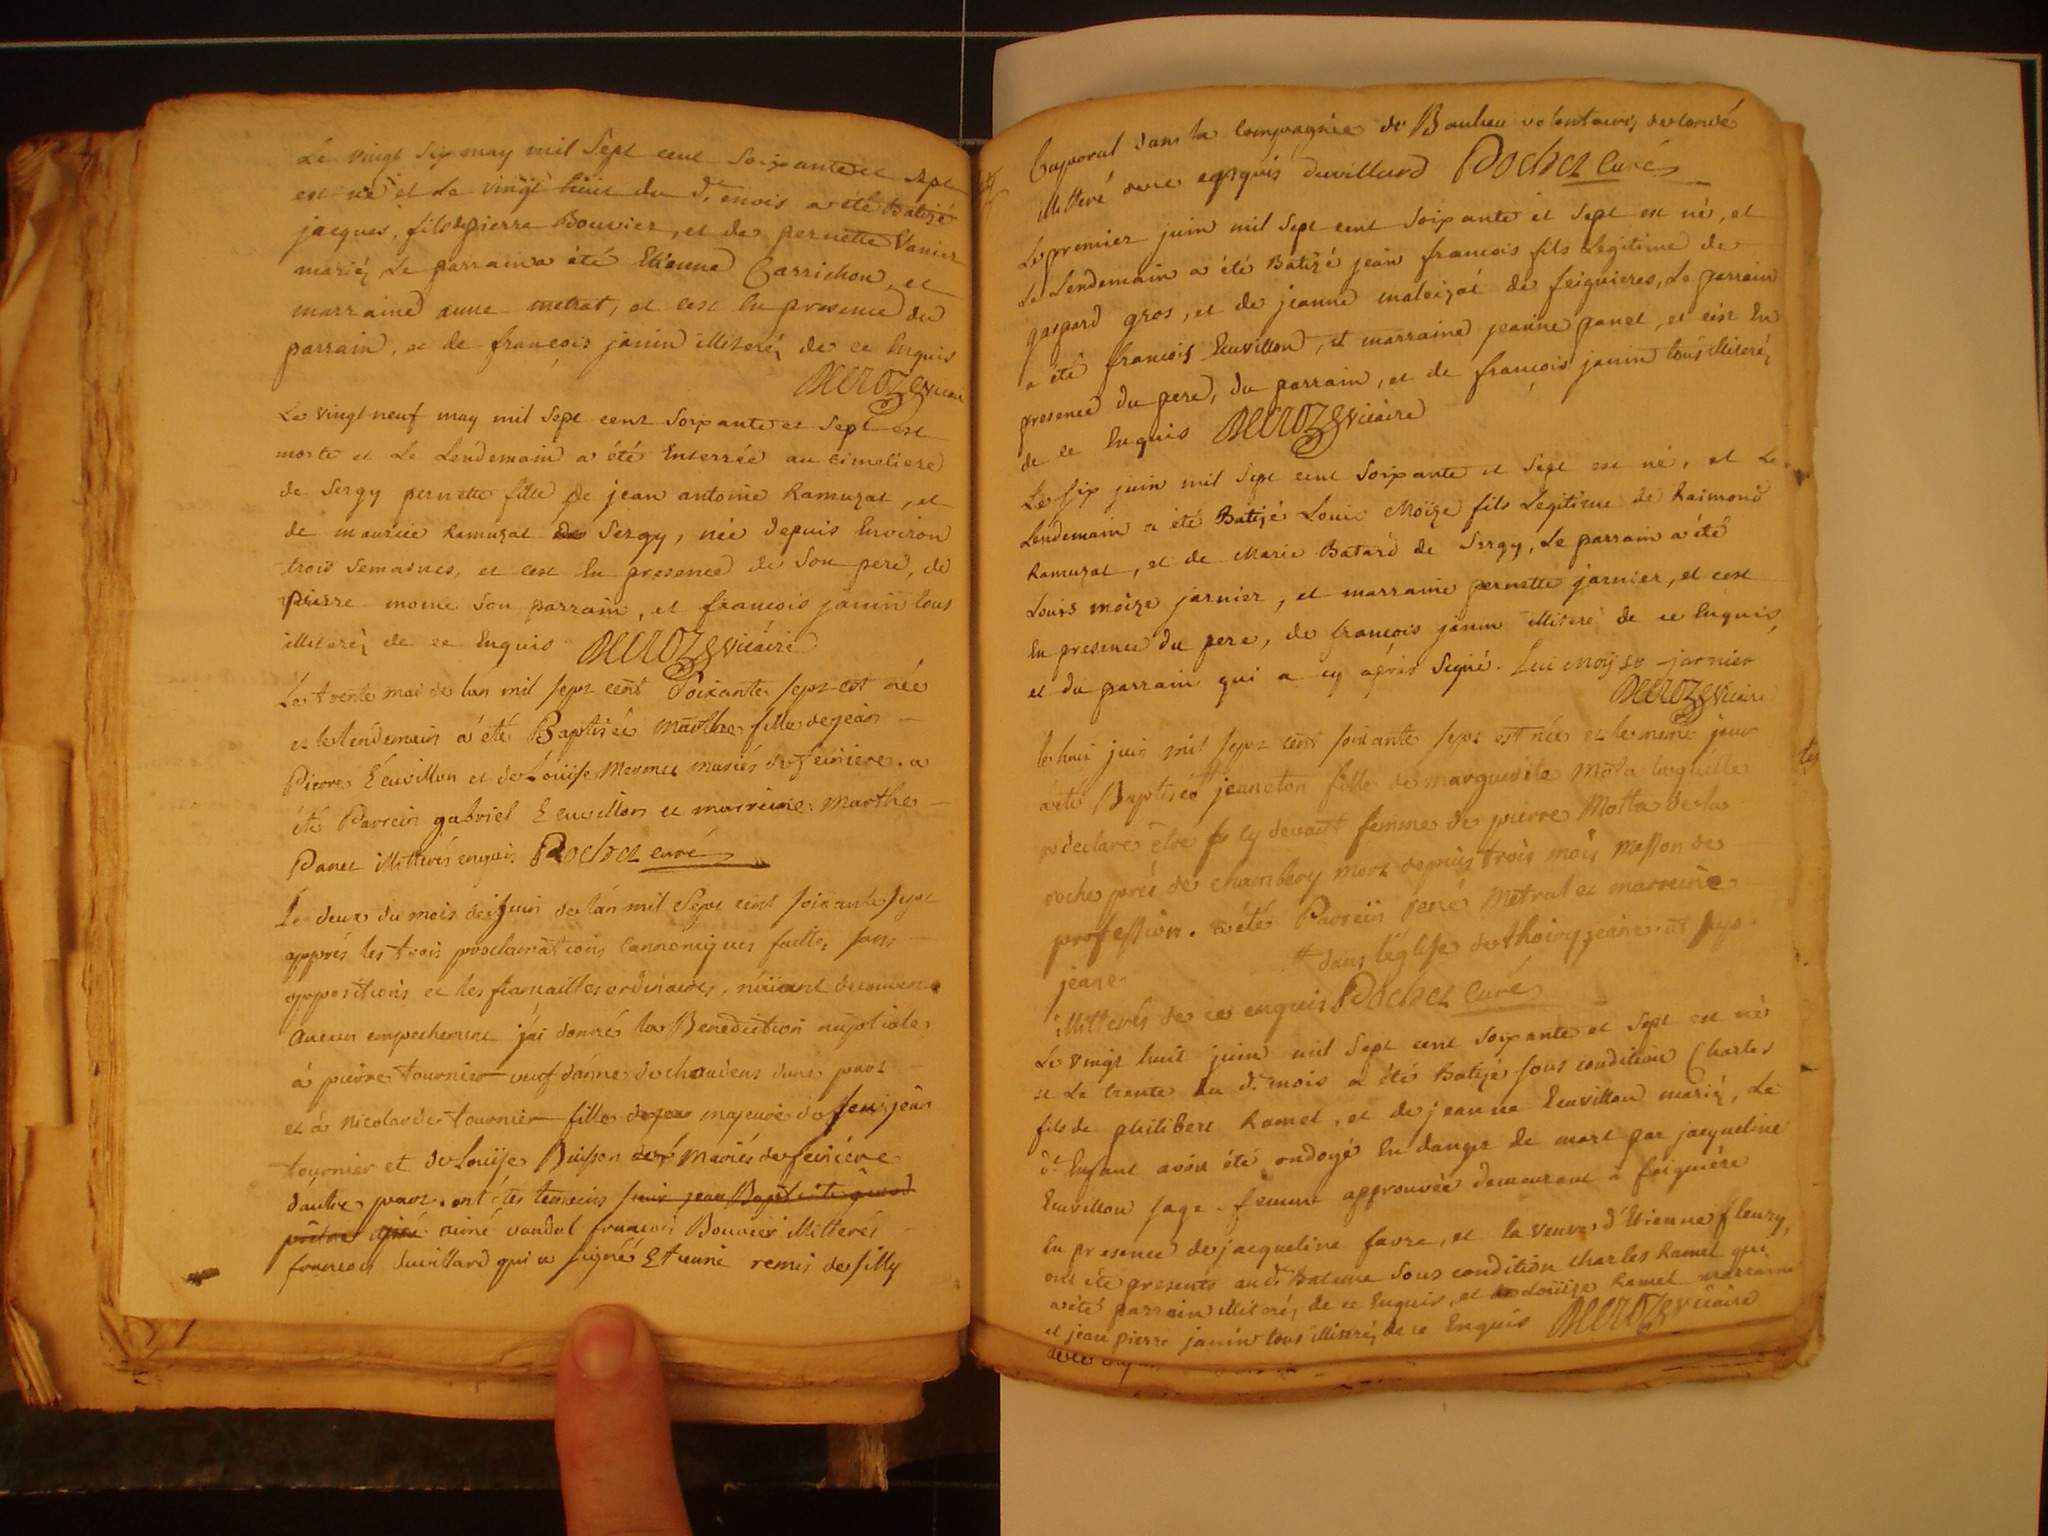 Le vingt six may mil Sept cent Soixante et sept
est né et Le vingt huit du d.t mois a été Batizé
jacques, fils de pierre Bouvier, et de pernette Vanier
mariéz Le parrain a été Etienne Carrichon, et
marraine anne metrat, et cest En presence du
parrain, et de françois janin illiteréz de ce Enquis
Decroze vicaire
Le vingt neuf may mil Sept cent Soixante et Sept est
morte et Le Lendemain a été Enterrée au cimetiere
de Sergy pernette fille de jean antoine Ramuzat, et
de maurice Ramuzat de Sergy, née depuis Environ
trois Semaines, et cest En presence de Son pere, de
pierre Son parrain, et françois janin tous
illiteréz de ce Enquis Decroze vicaire
Le trente mai de lan mil sept cent Soixante sept est née
et le lendemain a été Baptisée Marthe fille de jean
Pierre Leuvillon et de Louise Mermet mariés de feiniere. a
été Parrein gabriel Leuvillon et marreine Marthe
Panet illitterés enquis Rochet curé
Le deux du mois de juin de lan mil Sept cent soixante sept
apprés les trois proclamations cannoniques faittes sans
oppositions et les fiancailles ordinaires, n'aiiant decouvert
aucun empechement j'ai donné la Benediction nuptiale
à pierre tournier veuf danne de choudens dune part
et à Nicolarde tournier fille de feu majeure de feu jean
tournier et de Louise Buisson mariés de feiniere
dautre part. ont étés temoins sieur jean Baptiste girod
prêtre aimé vandel francois Bouvier illitterés
francois duvillard qui a signé Etienne remis de silly
Caporal dans la Compagnie de Baulieu volontaires
illitteré de ce enquis duvillard Rochet Curé
Le premier juin mil Sept cent Soixante et Sept est né, et
Le Lendemain a été Batizé jean francois fils Legitime de
gaspard gros, et de jeanne de feignieres, Le parrain
a été francois Leuvillon, et marraine jeanne panet, et cest En
presence du pere, du parrain, et de françois janin tous illiteréz
de ce Enquis Decroze vicaire
Le Six juin mil Sept cent Soixante et Sept est né, et Le
Lendemain a été Batizé Louis Moïze fils Legitime de Raimond
Ramuzat, et de Marie Batard de Sergy, Le parrain a été
Louis moize jarnier, et marraine pernette jarnier, et cest
En presence du pere, de françois janin illiteréz de ce Enquis,
et du parrain qui a cy après Signé. Lui moÿse jarnier
Decroze vicaire
le huit juin mil sept cent soixante sept est née et le meme jour
a été Baptisée # jeaneton fille de marguerite Mota laquelle
a declaré etre cy devant femme de pierre Motta de la
roche prés de chambery mort depuis trois mois Masson de
profession. a été Parrein René Metral et marreine
# dans l'église de thoiry
jeane
illitterés de ce enquis Rochet Curé
Le vingt huit juin mil Sept cent Soixante et Sept est né
et Le trente du d.t mois a été Batizé sous condition Charles
fils de philibert Ramel, et de jeanne Leuvillon mariéz, Le
d.t Enfant avoit été ondoyé En danger de mort par jacqueline
Leuvillon sage-femme approuvée demeurant à feigniére
En presence de jacqueline favre, et la veuve d'Etienne fleury,
ont été presents au d.t Bateme Sous condition Charles Ramel qui
a été parrain illiteréz de ce Enquis, et de Loüise Ramel marraine
et jean pierre janin tous illiteréz de ce Enquis Decroze vicaire